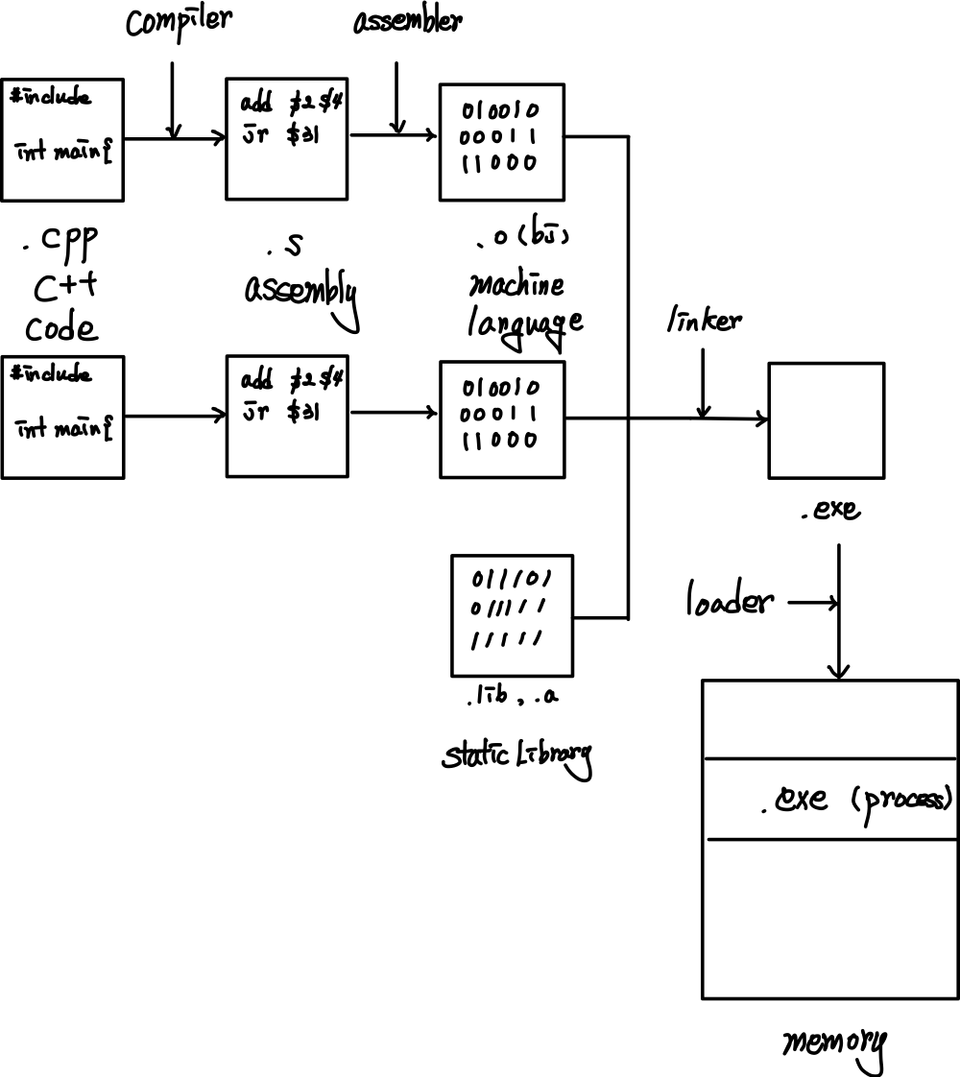 compiler
assembler
#include
int main{
add $2 $4
jr $31
010010
00011
11000
.cpp
C++
code
.s
assembly
.o(bj)
machine
language
linker
#include
int main{
add $2 $4
jr $31
010010
00011
11000
.exe
011101
011111
11111
.lib, .a
static Library
loader
.exe (process)
memory